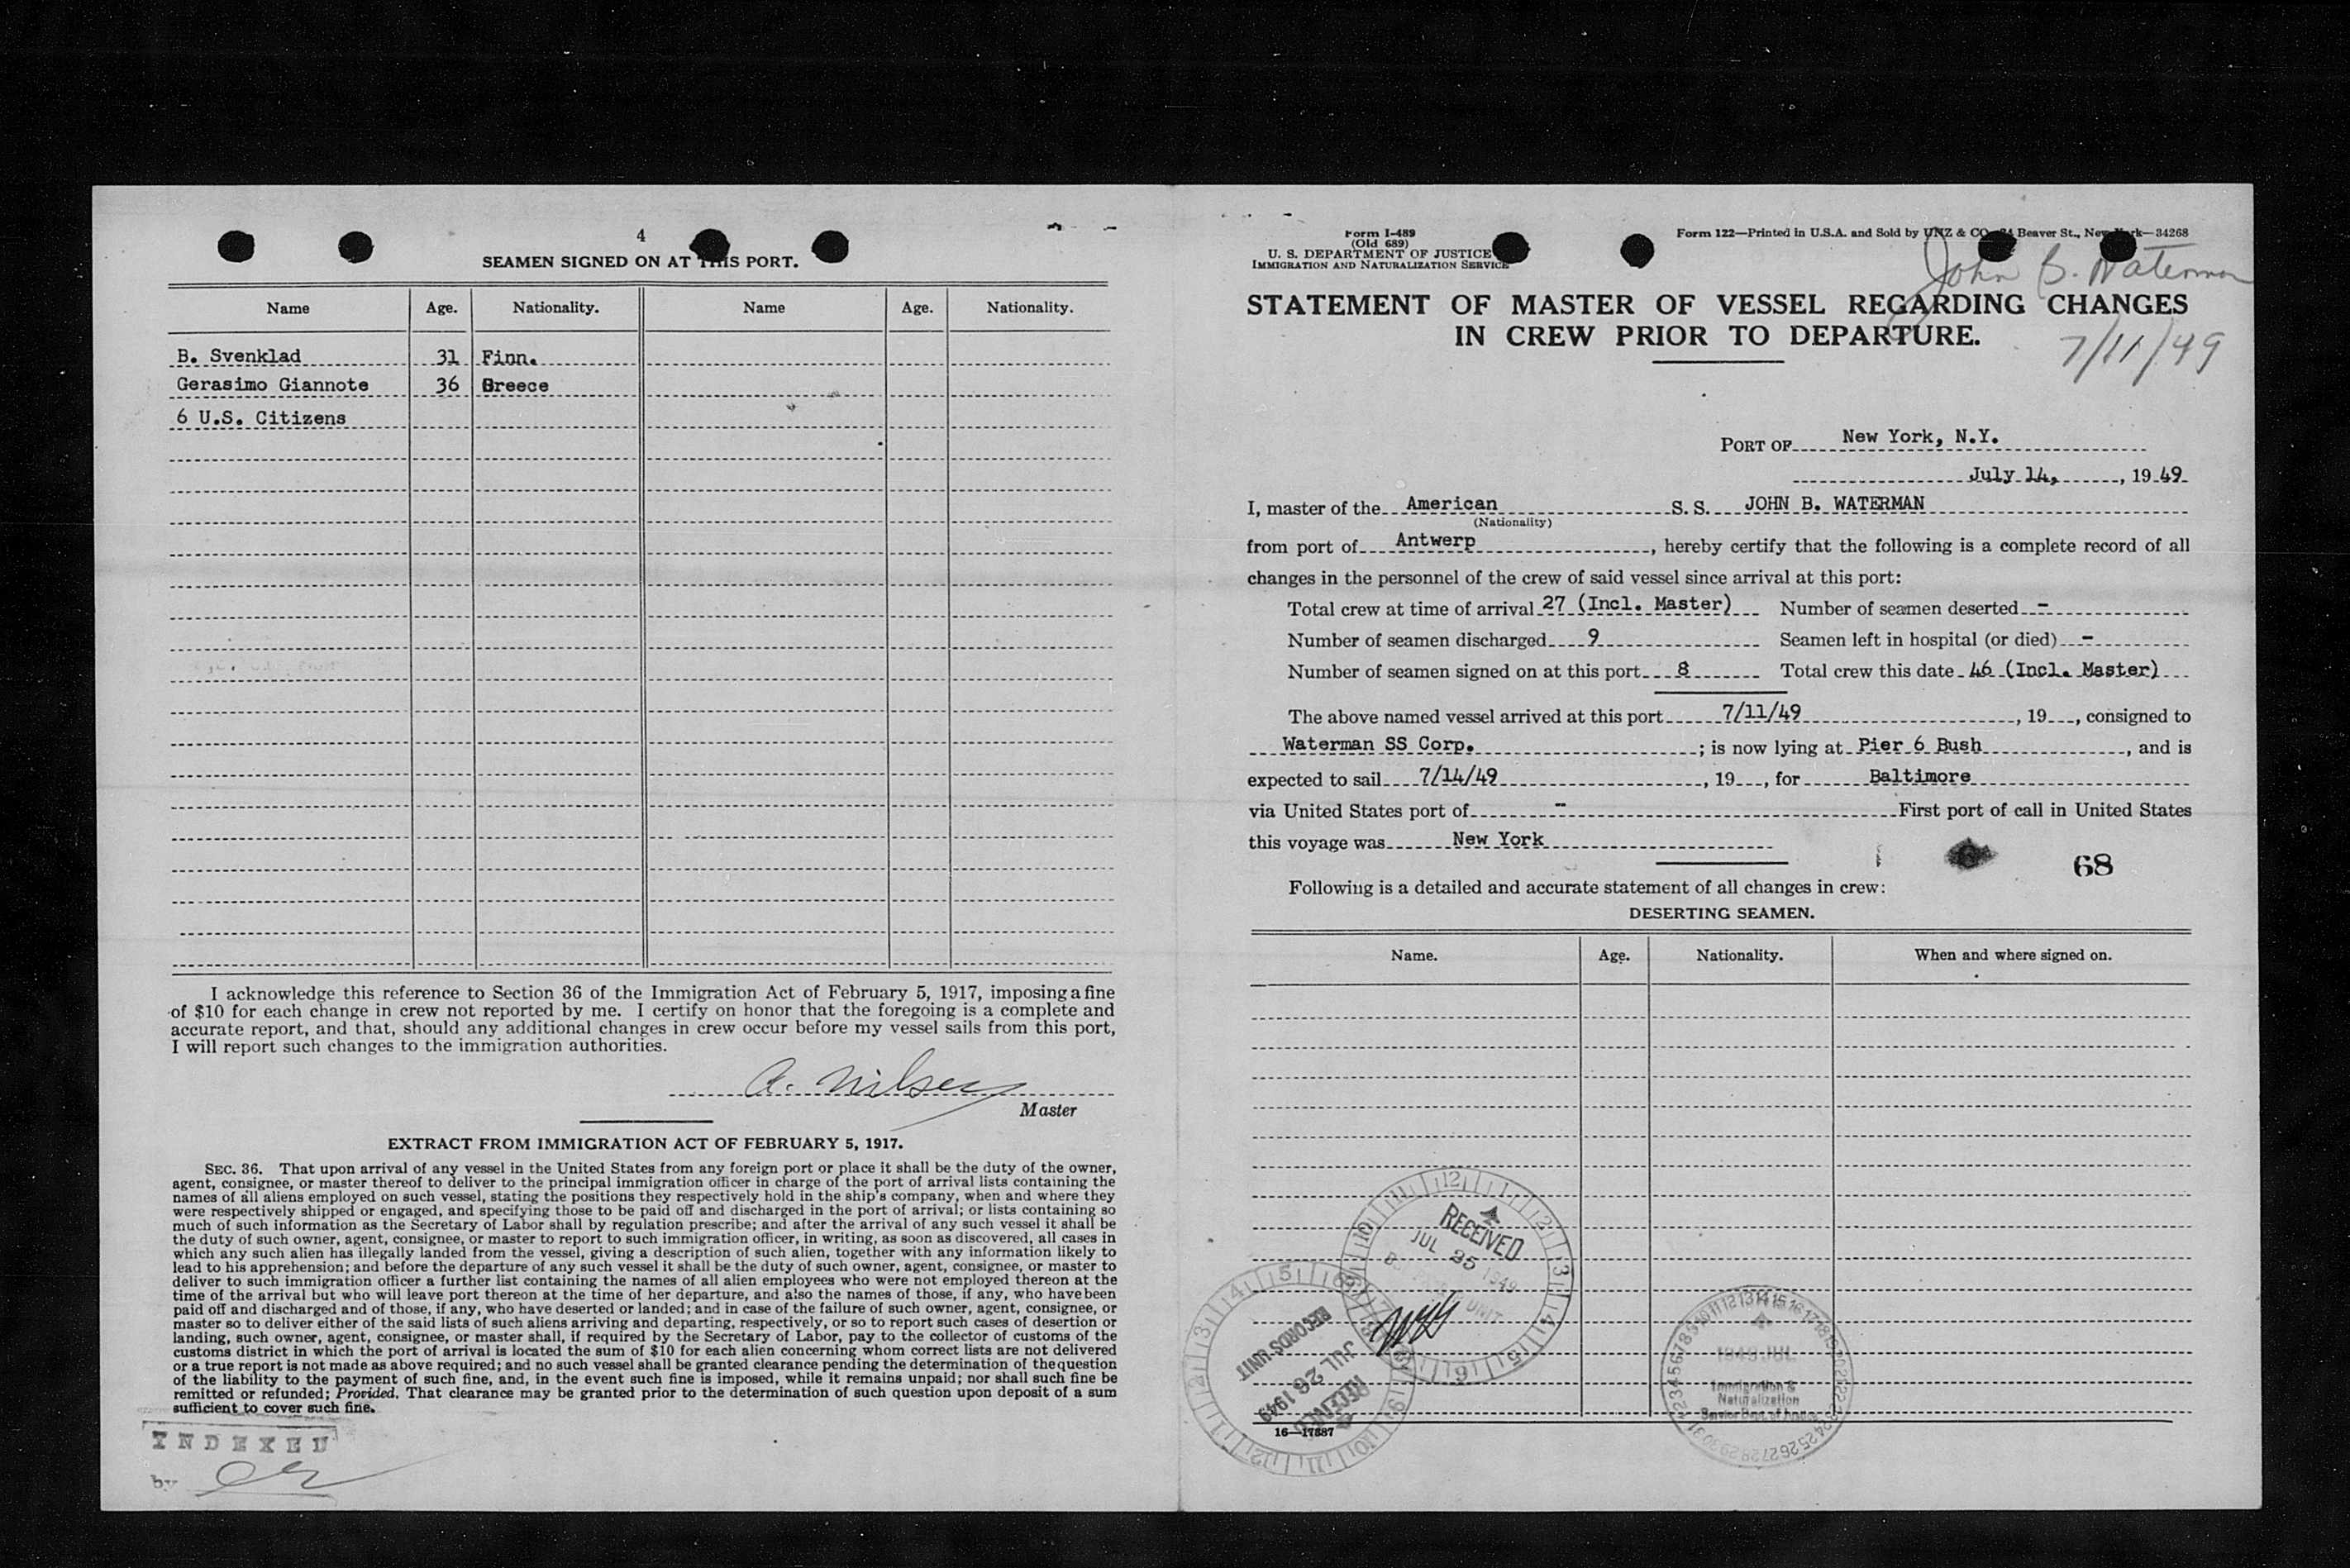 4
SEAMEN SIGNED ON AT THIS PORT.
Name Age. Nationality. Name Age. Nationality.
B. Svenklad 31 Finn.
Gerasimo Giannote 36 Greece
6 U.S. Citizens
I acknowledge this reference to Section 36 of the Immigration Act of February 5, 1917, imposing a fine
of $10 for each change in crew not reported by me. I certify on honor that the foregoing is a complete and
accurate report, and that, should any additional changes in crew occur before my vessel sails from this port,
I will report such changes to the immigration authorities.
A. Nilsen
Master
EXTRACT FROM IMMIGRATION ACT OF FEBRUARY 5, 1917.
SEC. 36. That upon arrival of any vessel in the United States from any foreign port or place it shall be the duty of the owner,
agent, consignee, or master thereof to deliver to the principal immigration officer in charge of the port of arrival lists containing the
names of all aliens employed on such vessel, stating the positions they respectively hold in the ship's company, when and where they
were respectively shipped or engaged, and specifying those to be paid off and discharged in the port of arrival; or lists containing so
much of such information as the Secretary of Labor shall by regulation prescribe; and after the arrival of any such vessel it shall be
the duty of such owner, agent, consignee, or master to report to such immigration officer, in writing, as soon as discovered, all cases in
which any such alien has illegally landed from the vessel, giving a description of such alien, together with any information likely to
lead to his apprehension; and before the departure of any such vessel it shall be the duty of such owner, agent, consignee, or master to
deliver to such immigration officer a further list containing the names of all alien employees who were not employed thereon at the
time of the arrival but who will leave port thereon at the time of her departure, and also the names of those, if any, who have been
paid off and discharged and of those, if any, who have deserted or landed; and in case of the failure of such owner, agent, consignee, or
master so to deliver either of the said lists of such aliens arriving and departing, respectively, or so to report such cases of desertion or
landing, such owner, agent, consignee, or master shall, if required by the Secretary of Labor, pay to the collector of customs of the
customs district in which the port of arrival is located the sum of $10 for each alien concerning whom correct lists are not delivered
or a true report is not made as above required; and no such vessel shall be granted clearance pending the determination of the question
of the liability to the payment of such fine, and, in the event such fine is imposed, while it remains unpaid; nor shall such fine be
remitted or refunded; Provided. That clearance may be granted prior to the determination of such question upon deposit of a sum
sufficient to cover such fine.
INDEXED
by
Form I-489
(Old 689)
U. S. DEPARTMENT OF JUSTICE
IMMIGRATION AND NATURALIZATION SERVICE
Form 122—Printed in U.S.A. and Sold by UNZ & CO. Beaver St., New York—34268
John B. Waterman
STATEMENT OF MASTER OF VESSEL REGARDING CHANGES
IN CREW PRIOR TO DEPARTURE.
7/11/49
PORT OF New York, N.Y.
July 14, , 19 49
I, master of the American S. S. JOHN B. WATERMAN
(Nationality)
from port of Antwerp , hereby certify that the following is a complete record of all
changes in the personnel of the crew of said vessel since arrival at this port:
Total crew at time of arrival 27 (Incl. Master) Number of seamen deserted -
Number of seamen discharged 9 Seamen left in hospital (or died) -
Number of seamen signed on at this port 8 Total crew this date 46 (Incl. Master)
The above named vessel arrived at this port 7/11/49 , 19 , consigned to
Waterman SS Corp. ; is now lying at Pier 6 Bush , and is
expected to sail 7/14/49 , 19 , for Baltimore
via United States port of - First port of call in United States
this voyage was New York
68
Following is a detailed and accurate statement of all changes in crew:
DESERTING SEAMEN.
Name. Age. Nationality. When and where signed on.
RECEIVED
JUL 25 1949
UNIT
RECEIVED
JUL 26 1949
RECORDS UNIT
1949 JUL
Immigration &
Naturalization
Service Dept. of Justice
16—17887